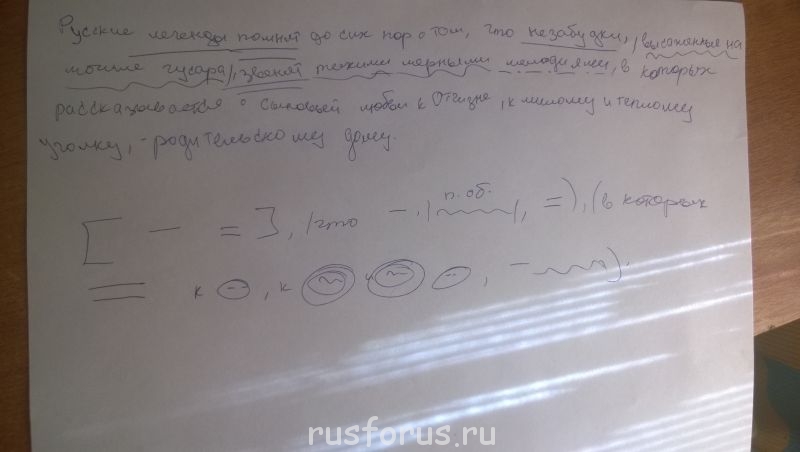 Русские легенды помнят до сих пор о том, что незабудки, /высаженные на
могиле гусара/, звенят тихими мерными мелодиями, в которых
рассказывается о сыновьей любви к Отчизне, к милому и теплому
уголку, - родительскому дому.
п. об.
[ — = ], (что —, | |, = ), (в которых
= к , к и , — ).
rusforus.ru